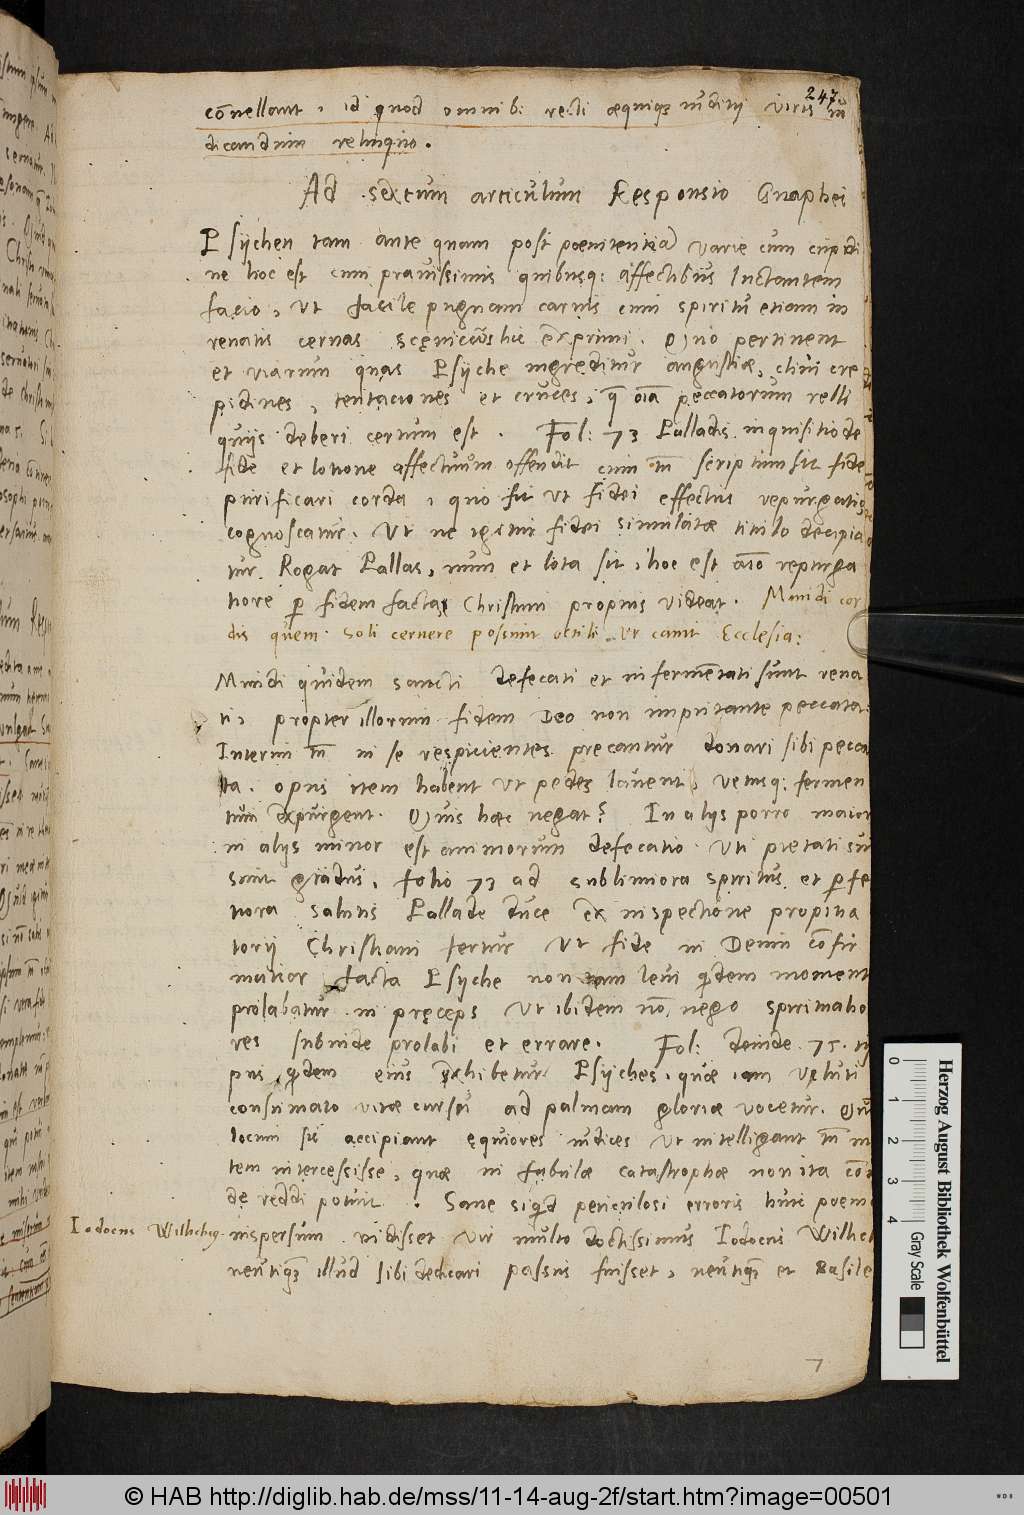 247
cōnellant, id quod omnib: recti æquiqȝ iuditij viris iu
dicandum relinquo.
Ad sextum articulum Responsio Gnaphei
Psychen tam ante quam post pœnitentiā varie cum cupidi
ne hoc est cum pravissimis quibusq: affectibus luctantem
facio, ut facile pugnam carnis cum spiritu etiam in
renatis cernas scenicωs hic exprimi. Quo pertinent
et viarum quas Psyche ingreditur angustiæ, clivi cre
pidines, tentaciones et cruces, q̄ oīa peccatorum relli
quijs deberi certum est. Fol: 73 Palladis inquisitio de
fide et lotione affectuum offendit cum tn̄ scriptum sit fide
purificari corda, quo fit ut fidei effectus repurgatio
cognoscatur. Ut ne igitur fidei simulatæ titulo decipia
tur. Rogat Pallas, num et lota sit, hoc est aīo repurga
tiore p fidem facta Christum propius videat. Mundi cor
dis quem soli cernere possunt oculi. Ut canit Ecclesia:
Mundi quidem sancti defecati et infermētati sunt rena
ti, propter illorum fidem Deo non imputante peccata:
Interim tn̄ in se respicientes precantur donari sibi pecca
ta. opus item habent ut pedes lavent, vetusq: fermen
tum expurgent. Quis hæc negat? In alijs porro maior
in alijs minor est animorum defecatio. Uti pietati sui
sunt gradus, folio 73 ad sublimiora spiritus et pfe
tiora salutis Pallade duce ex inspectione propitia
torij Christiani fertur Ut fide in Deum cōfir
matior facta Psyche non tam levi qdem moment
prolabatur in preceps Ut ibidem nō nego spiritualio
res subinde prolabi et errare. Fol: deinde 75. ty
pus qdem eius exhibetur Psyches, quæ iam veluti
consumato vitæ cursu ad palmam gloriæ vocetur. Quē
locum sic accipiant equiores iudices ut intelligant tn̄ in
tem intercessisse, quæ in fabulæ catastrophæ non ita cōmo
de reddi potuit. Sane siqd periculosi erroris huic poema
Iodocus Wilhelmus
inspersum vidisset vir multo doctissimus Iodocus Wilhel
neutiqȝ illud sibi dedicari passus fuisset, neutiqȝ et Basile
7
Herzog August Bibliothek Wolfenbüttel
0 1 2 3 4 Gray Scale
© HAB http://diglib.hab.de/mss/11-14-aug-2f/start.htm?image=00501